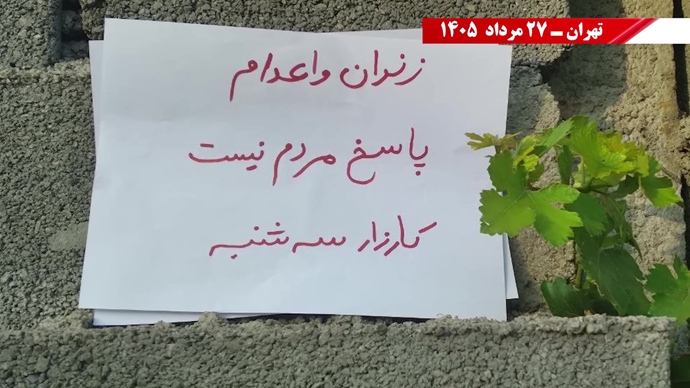 تهران ـ ۲۷ مرداد ۱۴۰۵
زندان و اعدام
پاسخ مردم نیست
کارزار سه شنبه